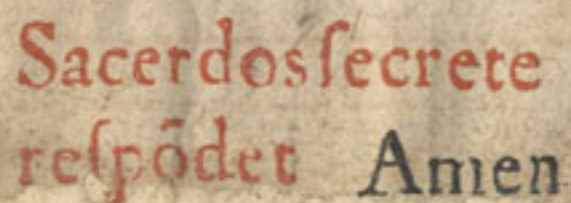 Sacerdos ſecrete
reſpõdet Amen